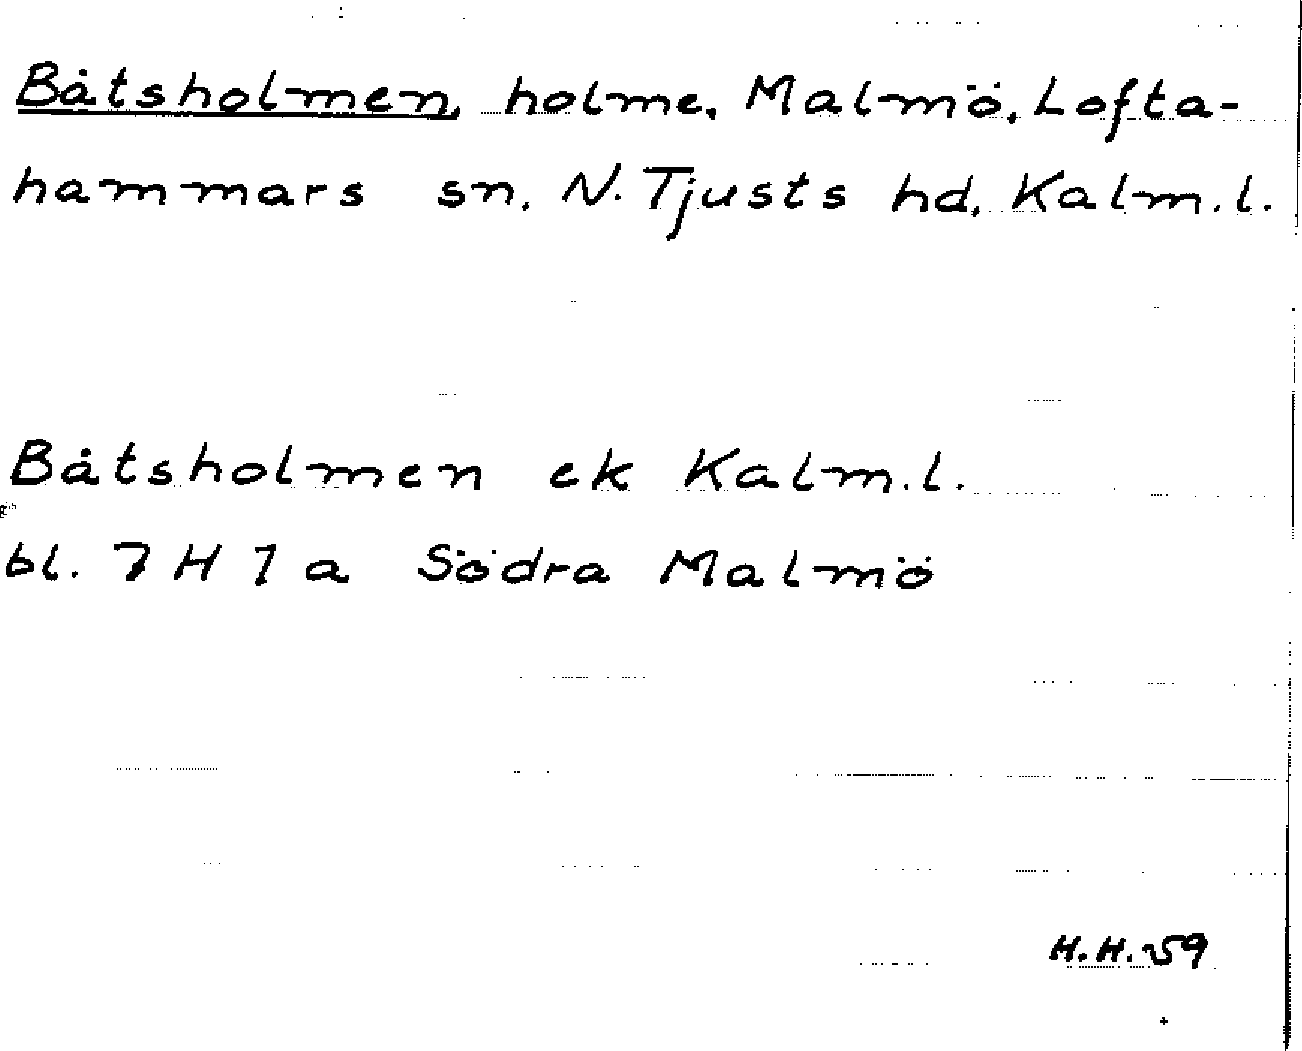 Båtsholmen, holme, Malmö, Lofta-
hammars sn, N. Tjusts hd, Kalm. l.
Båtsholmen ek Kalm. l.
bl. 7 H 7 a Södra Malmö
H.H. 59